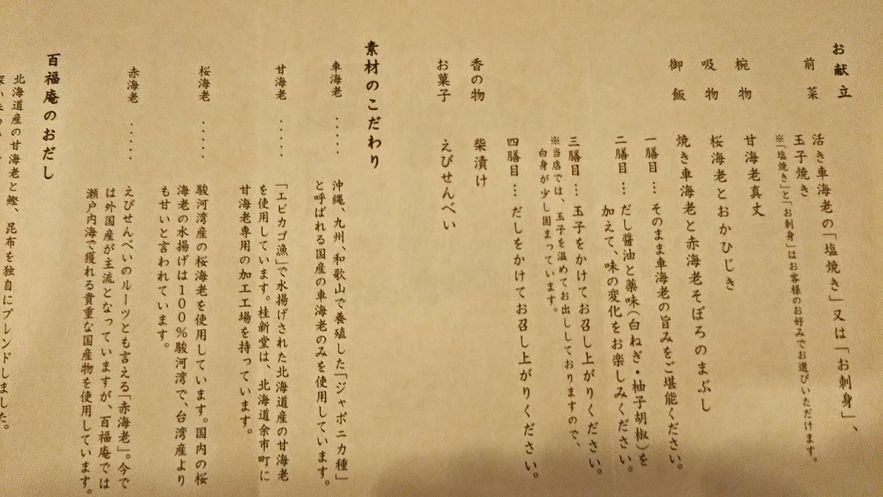 お献立
前菜 活き車海老の「塩焼き」又は「お刺身」、
玉子焼き
※「塩焼き」と「お刺身」はお客様のお好みでお選びいただけます。
椀物 甘海老真丈
吸物 桜海老とおかひじき
御飯 焼き車海老と赤海老そぼろのまぶし
一膳目…そのまま車海老の旨みをご堪能ください。
二膳目…だし醤油と薬味(白ねぎ・柚子胡椒)を
加えて、味の変化をお楽しみください。
三膳目…玉子をかけてお召し上がりください。
※当店では、玉子を温めてお出ししておりますので、
白身が少し固まっています。
四膳目…だしをかけてお召し上がりください。
香の物 柴漬け
お菓子 えびせんべい
素材のこだわり
車海老 ・・・・・ 沖縄、九州、和歌山で養殖した「ジャポニカ種」
と呼ばれる国産の車海老のみを使用しています。
甘海老 ・・・・・ 「エビカゴ漁」で水揚げされた北海道産の甘海老
を使用しています。桂新堂は、北海道余市町に
甘海老専用の加工工場を持っています。
桜海老 ・・・・・ 駿河湾産の桜海老を使用しています。国内の桜
海老の水揚げは100%駿河湾で、台湾産より
も甘いと言われています。
赤海老 ・・・・・ えびせんべいのルーツとも言える「赤海老」。今で
は外国産が主流となっていますが、百福庵では
瀬戸内海で獲れる貴重な国産物を使用しています。
百福庵のおだし
北海道産の甘海老と鰹、昆布を独自にブレンドしました。